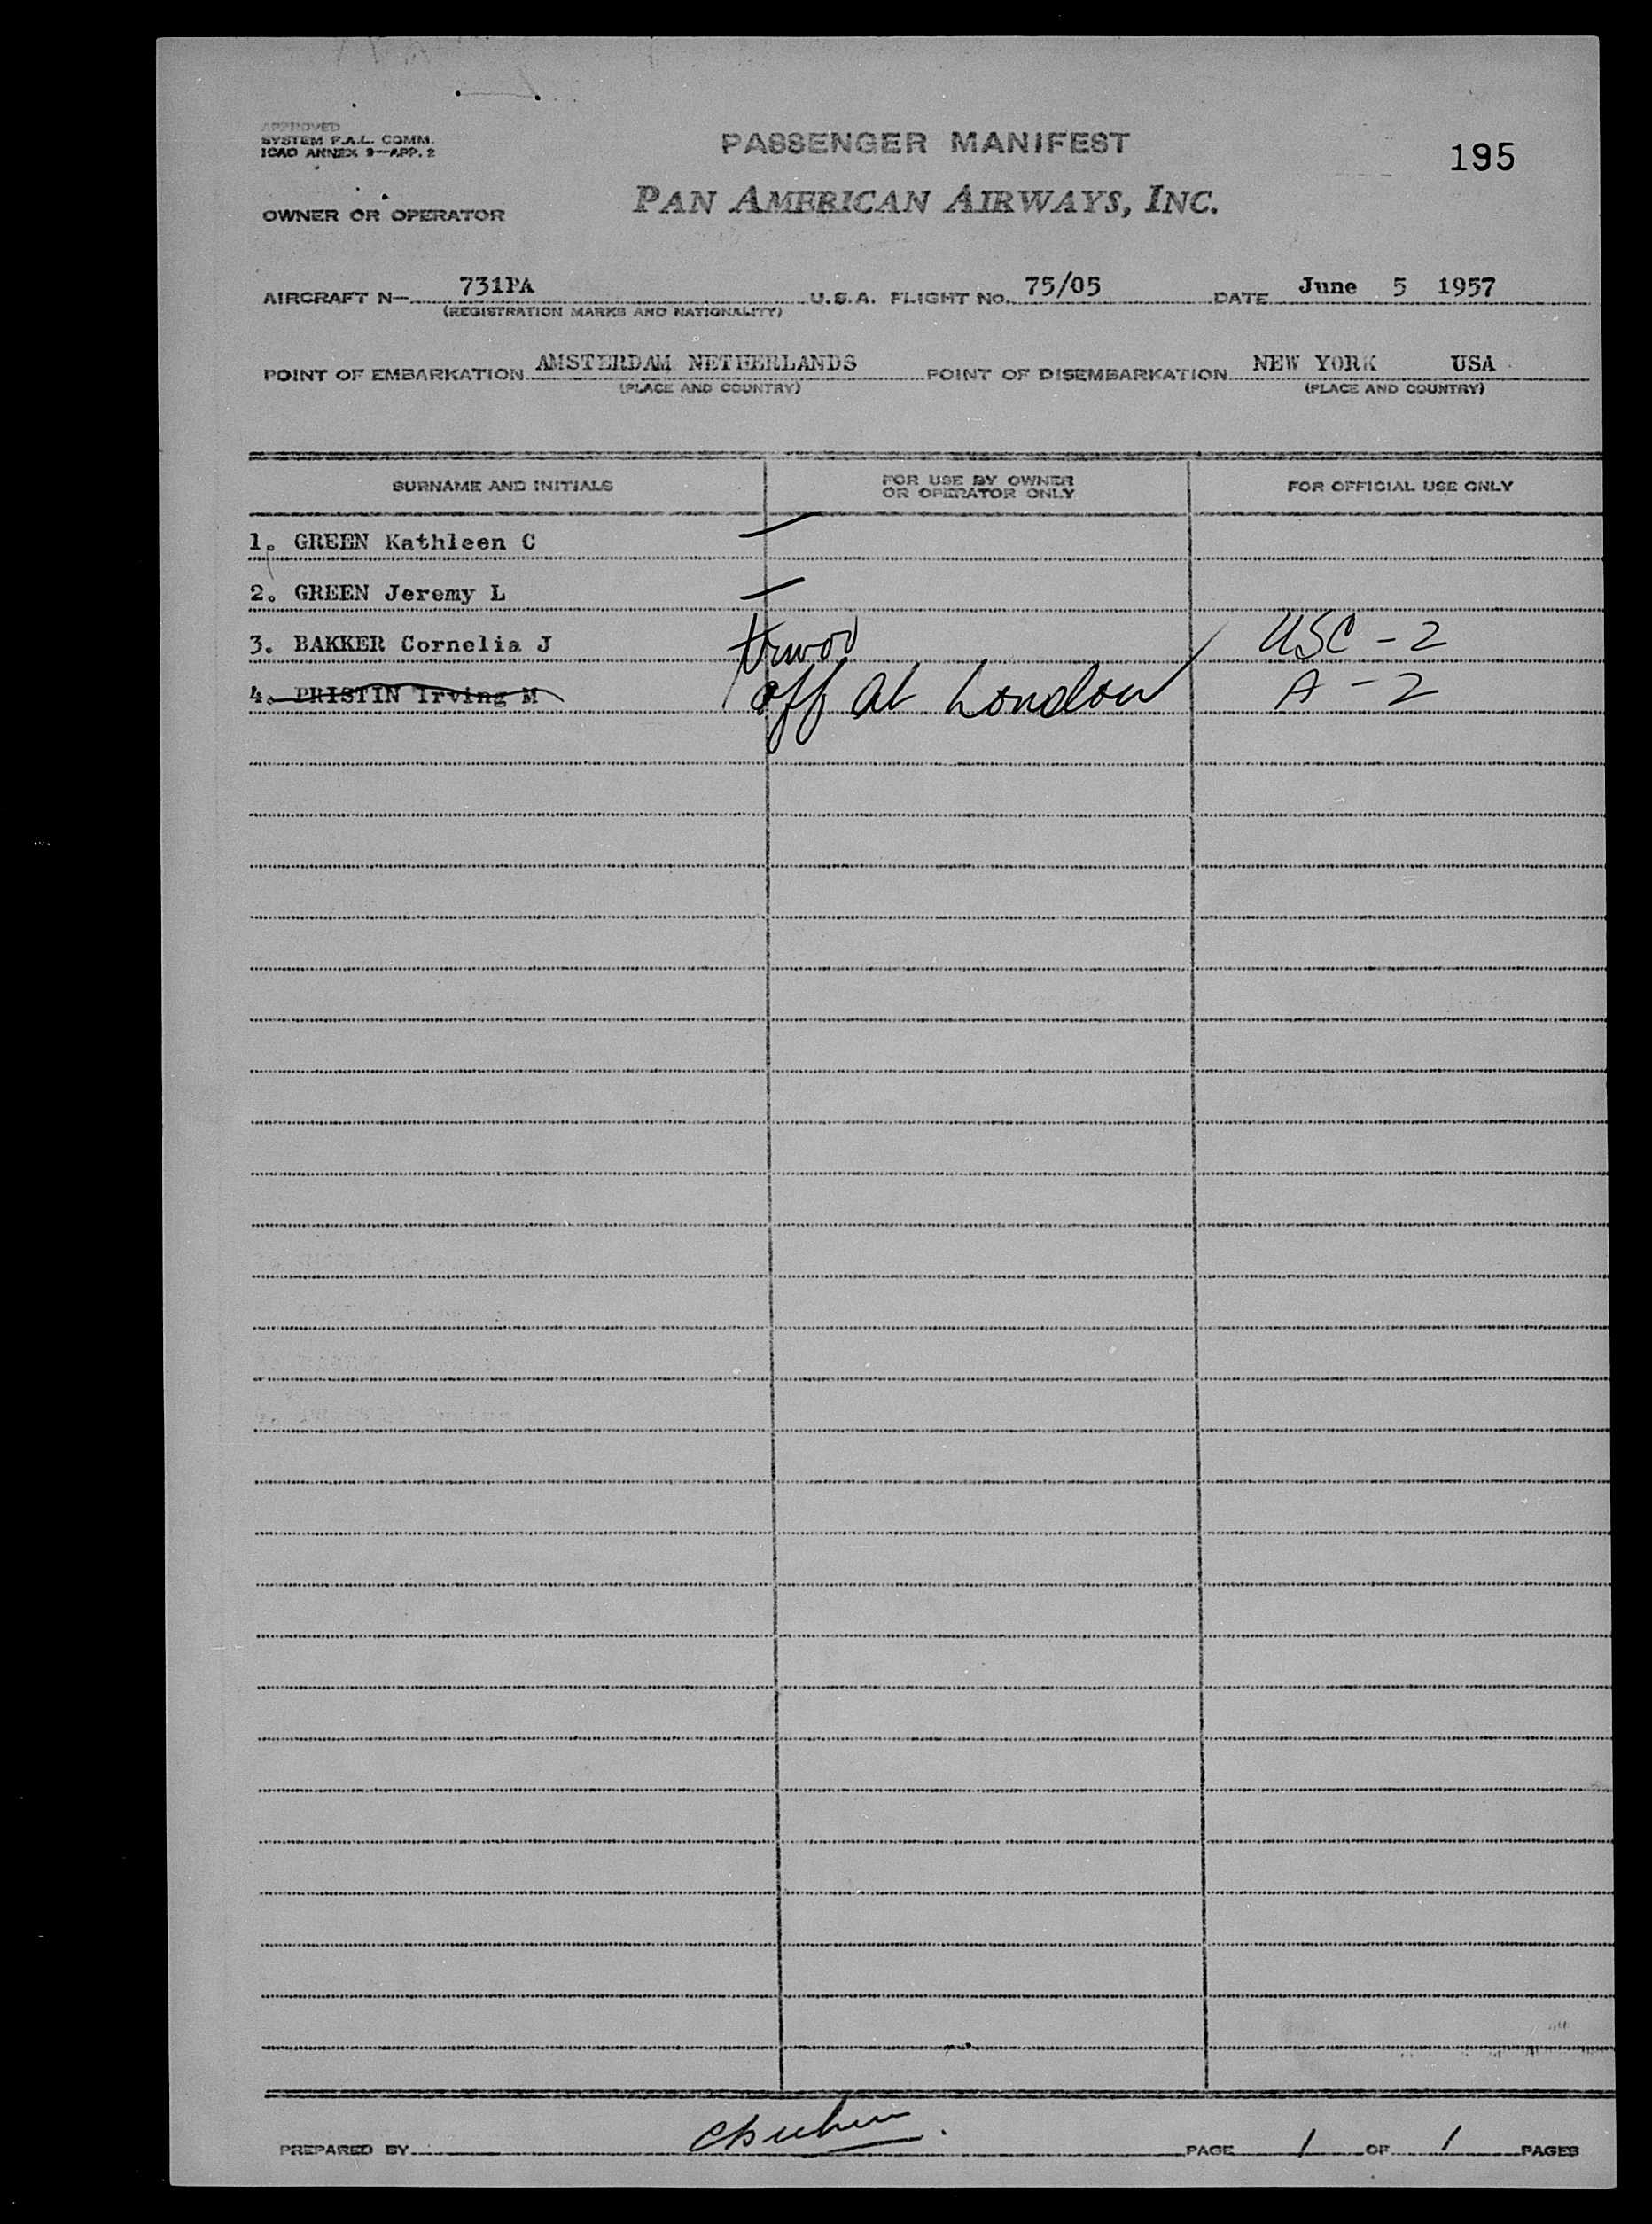 APPROVED
SYSTEM P.A.L. COMM.
ICAO ANNEX 9—APP. 2
PASSENGER MANIFEST
195
PAN AMERICAN AIRWAYS, INC.
OWNER OR OPERATOR
AIRCRAFT N— 731PA U.S.A. FLIGHT NO. 75/05 DATE June 5 1957
(REGISTRATION MARKS AND NATIONALITY)
POINT OF EMBARKATION AMSTERDAM NETHERLANDS POINT OF DISEMBARKATION NEW YORK USA
(PLACE AND COUNTRY) (PLACE AND COUNTRY)
SURNAME AND INITIALS FOR USE BY OWNER OR OPERATOR ONLY FOR OFFICIAL USE ONLY
1. GREEN Kathleen C
2. GREEN Jeremy L
3. BAKKER Cornelia J USC - 2
4. PRISTIN Irving M off at London A - 2
PREPARED BY PAGE 1 OF 1 PAGES